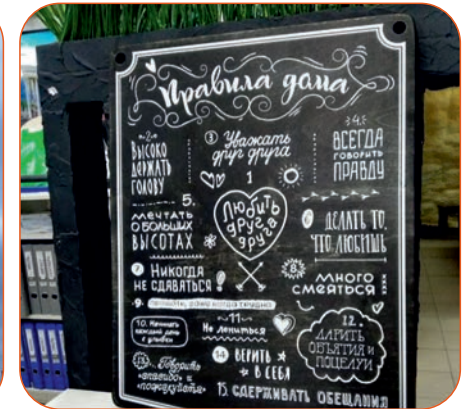 Правила дома
~2~
ВЫСОКО
ДЕРЖАТЬ
ГОЛОВУ
3 Уважать
друг друга
4.
ВСЕГДА
ГОВОРИТЬ
ПРАВДУ
1
ЛЮБИТЬ
ДРУГ
ДРУГА
5.
МЕЧТАТЬ
О БОЛЬШИХ
ВЫСОТАХ
6 ДЕЛАТЬ ТО,
ЧТО ЛЮБИШЬ
7 Никогда
НЕ СДАВАТЬСЯ!
8.
МНОГО
СМЕЯТЬСЯ
9. даже когда трудно
10. Начинать
каждый день
с улыбки
~11~
Не лениться
12.
ДАРИТЬ
ОБЪЯТИЯ И
ПОЦЕЛУИ
13. Говорить
«спасибо» и
«пожалуйста»
14 ВЕРИТЬ
В СЕБЯ
15. СДЕРЖИВАТЬ ОБЕЩАНИЯ